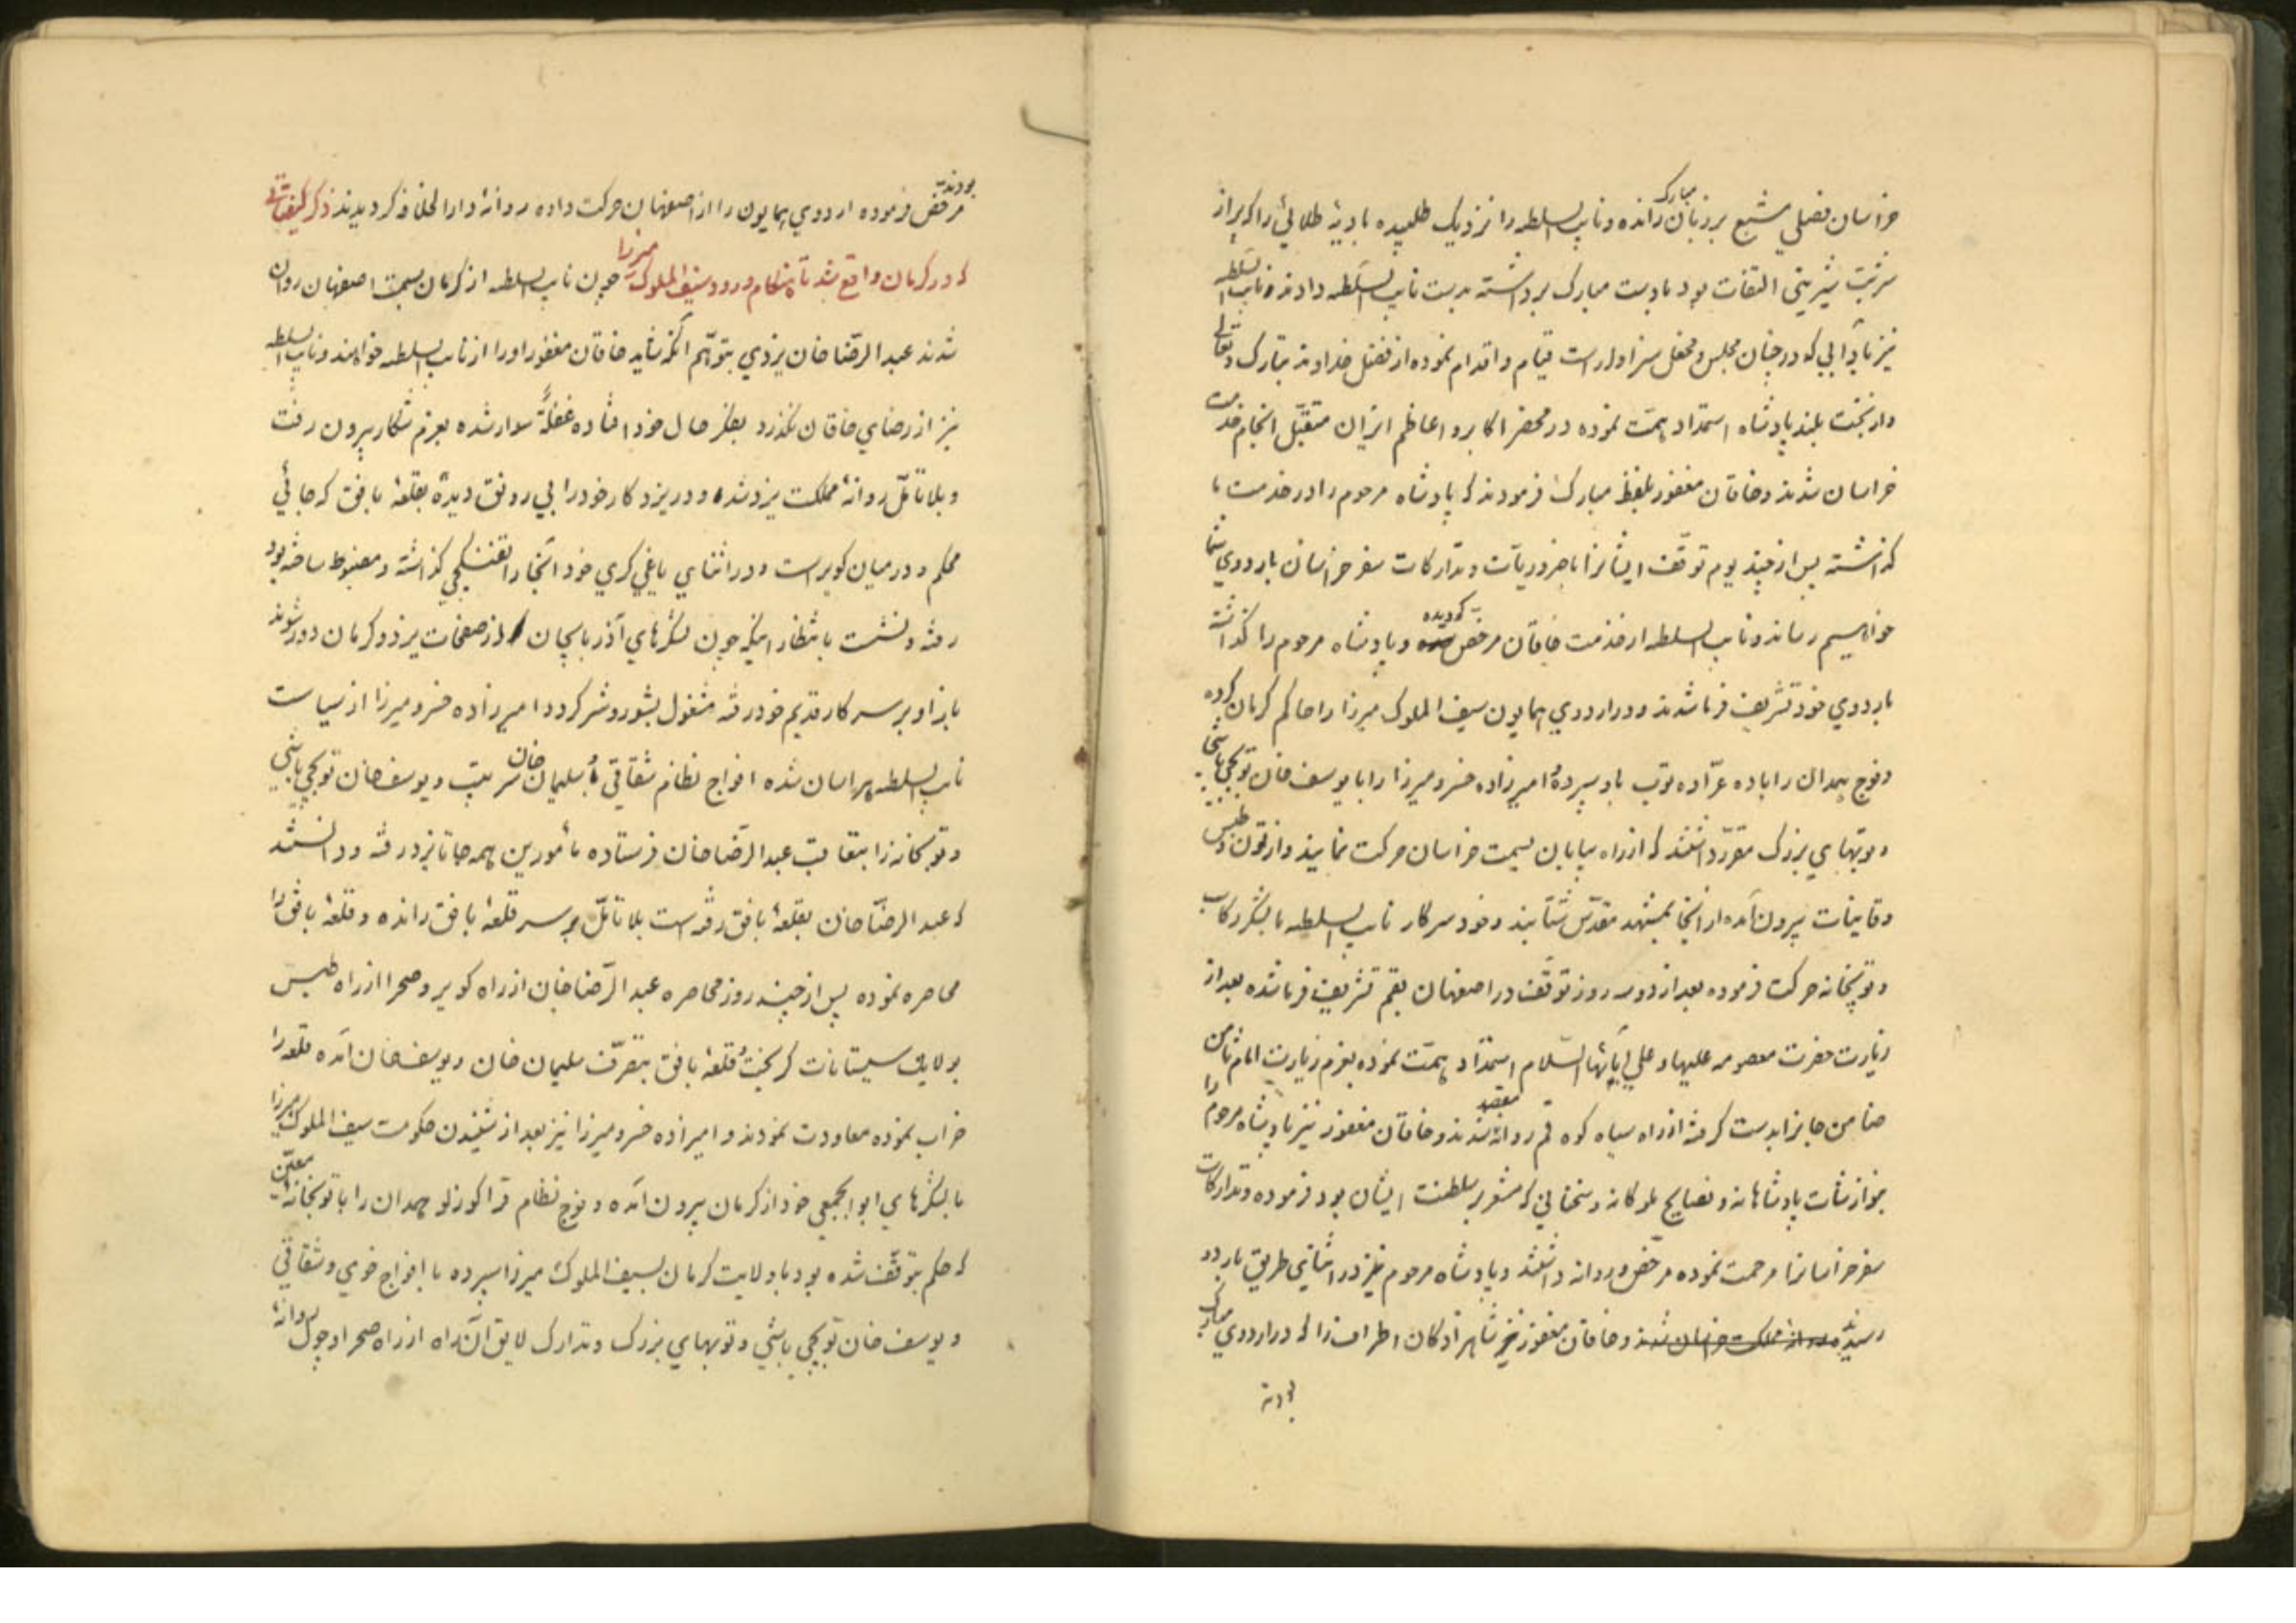 خراسان فصلی مشبع بر زبان مبارک رانده و نایب السلطه را نزدیک طلبیده بادیهٔ طلائی را که پر از
شربت شیرینی التفات بود بادست مبارک برداشته بدست نایب السلطه دادند و نایب السلطه
نیز بآدابی که در چنان مجلس و محفل سزاوار است قیام و اقدام نموده از فضل خداوند تبارک و تعالی
و از بخت بلند پادشاه استمداد همت نموده در محضر اکابر و اعاظم ایران متقبّل انجام خدمت
خراسان شدند و خاقان مغفور بلفظ مبارک فرمودند که پادشاه مرحوم را در خدمت ما
گذاشته پس از چند یوم توقّف ایشانرا با ضروریّات و تدارکات سفر خراسان باردوی شما
خواهیم رساند و نایب السلطه از خدمت خاقان مرخص گردیده و پادشاه مرحوم را گذاشته
باردوی خود تشریف فرما شدند و در اردوی همایون سیف الملوک میرزا را حاکم کرمان کرده
و فوج همدان را با ده عرّاده توپ باو سپرده و امیرزاده خسرو میرزا را با یوسف خان توپچی باشی
و توپهای بزرگ مقرّر داشتند که از راه بیابان بسمت خراسان حرکت نمایند و از تون و طبس
و قاینات بیرون آمده از آنجا بمشهد مقدّس شتابند و خود سرکار نایب السلطه با لشکر رکاب
و توپخانه حرکت فرموده بعد از دو سه روز توقّف در اصفهان بقم تشریف فرما شده بعد از
زیارت حضرت معصومه علیها و علی آبائها السّلام استمداد همّت نموده بعزم زیارت امام ثامن
ضامن جانرا بدست گرفته از راه سیاه کوه قم روانه مقصد شدند و خاقان مغفور نیز پادشاه مرحوم را
بنوازشات پادشاهانه و نصایح ملوکانه و سخنانی که مشعر بر سلطنت ایشان بود فرموده و تدارکات
سفر خراسانرا مرحمت نموده مرخّص و روانه داشتند و پادشاه مرحوم نیز در اثنای طریق باردو
رسیدند و خاقان مغفور نیز شاهزادگان اطراف را که در اردوی مبارک
بودند
بودند مرخّص فرموده اردوی همایون را از اصفهان حرکت داده روانهٔ دارالخلافه گردیدند ذکر کیفیّاتی
که در کرمان واقع شد تا هنگام ورود سیف الملوک میرزا چون نایب السلطه از کرمان بسمت اصفهان روان
شدند عبد الرّضا خان یزدی بتوهّم آنکه شاید خاقان مغفور او را از نایب السلطه خواهند و نایب السلطه
نیز از رضای خاقان نگذرد بفکر حال خود افتاده غفلةً سوار شده بعزم شکار بیرون رفت
و بلا تأمّل روانهٔ مملکت یزد شده و در یزد کار خود را بی رونق دیده بقلعهٔ بافق که جائی
محکم و در میان کویر است و در اثنای یاغی گری خود آنجا را تفنگچی گذاشته و مضبوط ساخته بود
رفته و نشست بانتظار اینکه چون لشکرهای آذربایجان از صفحات یزد و کرمان دور شوند
باز او بر سر کار قدیم خود رفته مشغول بشور و شر گردد امیرزاده خسرو میرزا از سیاست
نایب السلطه هراسان شده افواج نظام شقاقی و سلیمان خان سرتیپ و یوسف خان توپچی باشی
و توپخانه را بتعاقب عبد الرّضا خان فرستاده مأمورین همه جا تا یزد رفته و دانستند
که عبد الرضّا خان بقلعهٔ بافق رفته است بلا تأمّل بر سر قلعهٔ بافق رانده و قلعهٔ بافق را
محاصره نموده پس از چند روز محاصره عبد الرّضا خان از راه کویر و صحرا از راه طبس
بولایت سیستانات گریخت و قلعهٔ بافق بتصرّف سلیمان خان و یوسف خان آمده قلعه را
خراب نموده معاودت نمودند و امیرزاده خسرو میرزا نیز بعد از شنیدن حکومت سیف الملوک میرزا
با لشکرهای ابوابجمعی خود از کرمان بیرون آمده و فوج نظام قراگوزلو همدان را با توپخانهٔ معیّن
که حکم بتوقّف شده بود با ولایت کرمان بسیف الملوک میرزا سپرده با افواج خوی و شقاقی
و یوسف خان توپچی باشی و توپهای بزرگ و تدارک لایق آن راه از راه صحرا و چول روانهٔ